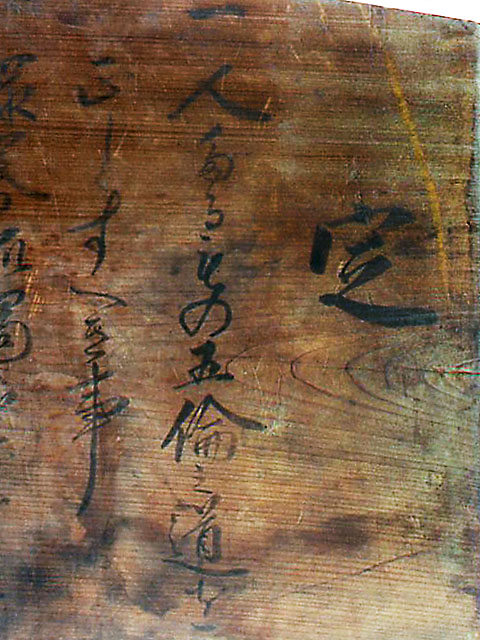 定
一人たるもの五倫之道を
正しすへき事
鰥寡孤獨